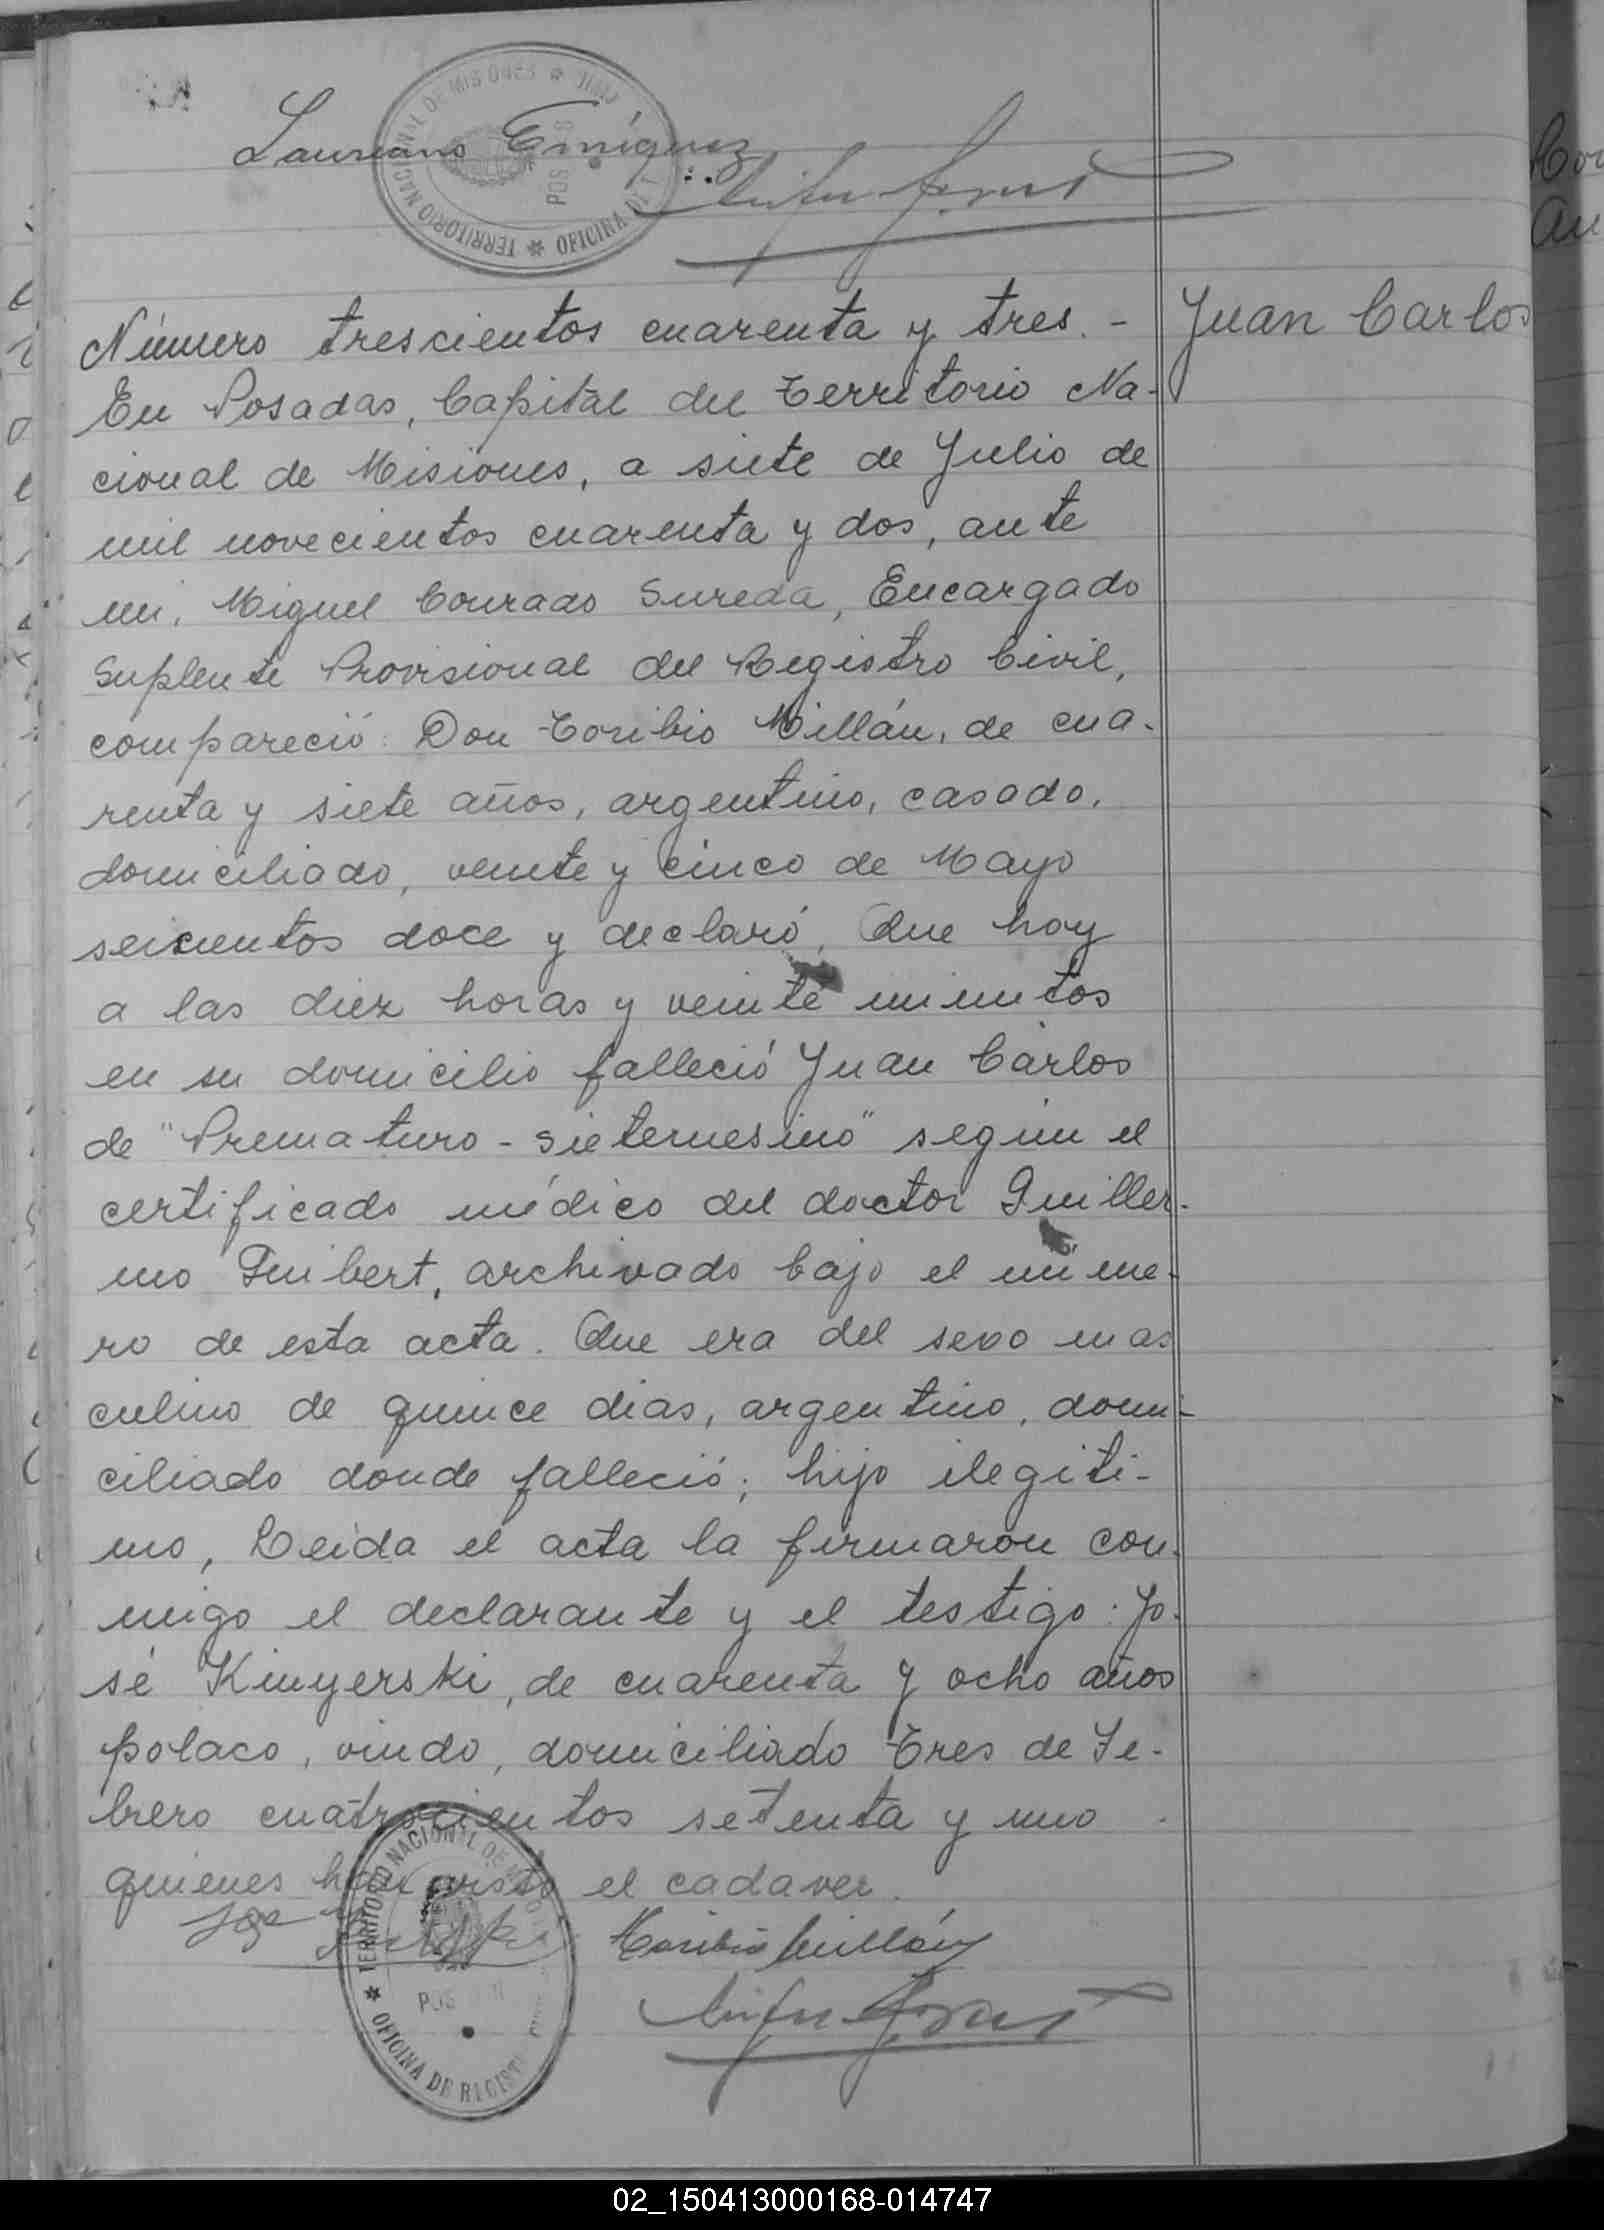 Laureano Eníquez
Número trescientos cuarenta y tres. -
Juan Carlos
En Posadas, Capital del Territorio Na-
cional de Misiones, a siete de Julio de
mil novecientos cuarenta y dos, ante
mi, Miguel Conrado Sureda, Encargado
Suplente Provisional del Registro Civil,
compareció: Don Toribio Millán, de cua-
renta y siete años, argentino, casado,
domiciliado, veinte y cinco de Mayo
seicientos doce y declaró, Que hoy
a las diez horas y veinte minutos
en su domicilio falleció Juan Carlos
de "Prematuro - sietemesino" según el
certificado médico del doctor Guiller-
mo Guibert, archivado bajo el núme-
ro de esta acta. Que era del sexo mas
culino de quince dias, argentino, domi-
ciliado donde falleció; hijo ilegiti-
mo, Leida el acta la firmaron con-
migo el declarante y el testigo: Jo-
sé Kinyerski, de cuarenta y ocho años
polaco, viudo, domiciliado Tres de Fe-
brero cuatrocientos setenta y uno
quienes han visto el cadaver.
Toribio Millán
TERRITORIO NACIONAL DE MISIONES
OFICINA DE
POSADAS
02_150413000168-014747